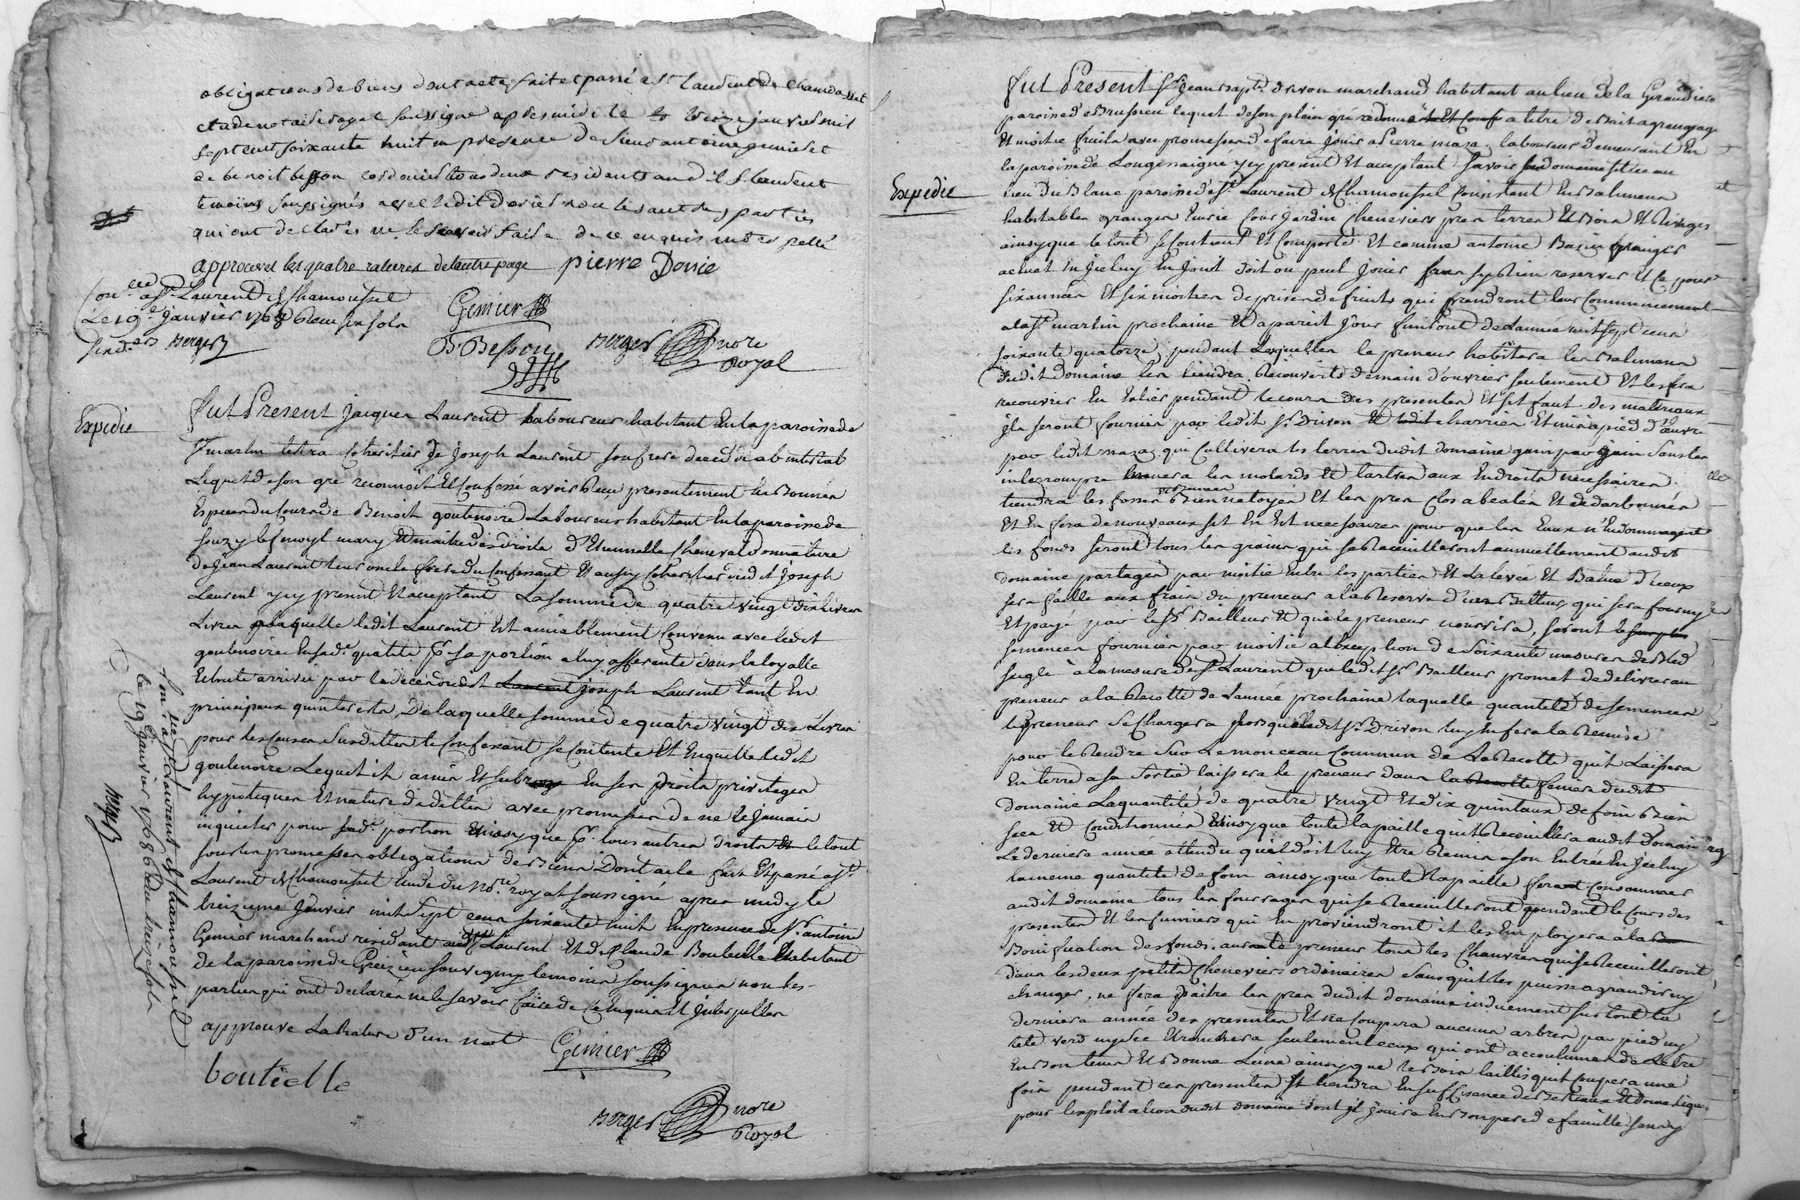 obligations de biens dont acte fait et passé a St laurent de chamousset
etude notaire royal soussigné apres midi le treize janvier mil
sept cent soixante huit en presence de Sieur antoine genier et
de benoit besson cordonier tous deux residants audit St laurent
temoins soussignés avec ledit dorie non les autres parties
qui ont declarés ne le scavoir faire de ce enquis interpellé
approuvé les quatre ratures de lautre page pierre Dorie
Con.lée a St Laurent de Chamousset
Le 19e Janvier 1768 Reçu six sols
six d.ers Berger
Genier
B Besson
Berger nore
Royal
Expedie
Fut Present Jacques Laurent laboureur habitant en la paroisse de
St martin lestra coheritier de Joseph Laurent son frere decedé ab intestat
Lequel de son gré reconnoit et confesse avoir Reçu presentement en bonnes
Especes du cours de Benoit goutenoire Laboureur habitant en la paroisse de
souzy lefenoyl mary et maitre des droits d'Etiennette Cheneval donnataire
de Jean Laurent leur oncle frere du confessant et aussy coheritier dudit Joseph
Laurent icy present et acceptant La somme de quatre vingt dix livres
Livres a laquelle ledit Laurent s'est amiablement convenu avec ledit
goutenoire en sad. qualité pr sa portion a luy afferente dans la loyalle
Echute arrivée par le décés dudit Laurent Joseph Laurent tant en
principaux qu'interets, De laquelle somme de quatre vingt dix Livres
pour les causes susdittes le confessant se contente et en quitte ledit
goutenoire Lequel il a mis et subrogé en ses droits privileges
hypoteques et nature de dettes avec promesse de ne le jamais
inquieter pour sad. portion ainsy que pr tous autres droits et le tout
sous les promesses obligations de biens Dont acte fait et passé a St
Laurent de Chamousset Etude du Nore royal soussigné apres midy le
treizieme Janvier mil sept cens soixante huit En presence de Sr. antoine
Genier marchand residant audit St Laurent et de Claude Boutielle habitant
de la paroisse de Grezieu souvigny temoins soussignes non les
parties qui ont declarés ne le savoir faire de ce enquis et interpelles
approuvé La Rature d'un mot
Genier
boutielle
Berger nore
Royal
Con.lée a St Laurent de Chamousset
le 19e Janvier 1768 Reçu treize sols
Berger
Expedie
Fut Present Sr. Jean bapte. Drivon marchand habitant au lieu de la Giraudiere
paroisse de Brussieu lequel de son plein gré a donné a titre de Bail a grangeage
Et moitié fruits avec promesse de faire jouir a Pierre maza laboureur demeurant En
la paroisse de Longessaigne icy present Et acceptant Savoir un domaine situé au
lieu du Blanc paroisse de St Laurent de Chamousset Consistant En Batimens
habitables granges Ecurie Cour jardin Cheneviers prés terres Et Bois Et Vivages
ainsy que le tout se Contient Et Comporte Et comme antoine Bazin granger
actuel En Jceluy En Jouit Doit ou peut Jouir sans sy Rien reserver Et Ce pour
six années Et six moitiés de prises de fruits qui prendront leur Commencement
a la St. martin prochaine Et a pareil Jour finiront de Lannée mil sept cens
soixante quatorze, pendant Lesquelles le preneur habitera les Batimens
Dudit Domaine les tiendra Recouverts de main d'ouvrier seulement Et les fera
recouvrir En Entier pendant le cours Des presentes Et s'il faut des materiaux
Jls seront fournis par ledit Sr. Drivon Et charriés Et mis a pied d'œuvre
par ledit maza, qui Cultivera les terres dudit domaine gain par gain sans les
interrompre menera les molards Et tertres aux Endroits nécessaires.
tiendra les fosses Bien netoyes Et les pres clos abealés Et dedarbonnés
Et En fera de nouveaux s'il En Est necessaires pour que les Eaux n'Endommagent
les fonds seront tous les grains qui se Receuilleront annuellement audit
domaine partagés par moitie Entre les parties Et La levée Et Battue d'iceux
sera faitte aux frais du preneur a la Reserve d'un Batteur que sera fourny
Et payé par le Sr. Bailleur Et que le preneur nourrira, seront les
semences fournies par moitié a l'exception de soixante mesures de Bled
seigle à la mesure de St Laurent que ledit Sr. Bailleur promet de delivrer au
preneur a la Recolte de l'année prochaine laquelle quantité de semences
le preneur se Chargera Jusqu'a ledit Sr. Drivon luy En fera la Remise
pour le Rendre sur le monceau Commun de la Recolte qu'il Laissera
En terre a sa sortie laissera le preneur dans la feniere dudit
domaine La quantité de quatre vingt Et dix quintaux de foin Bien
secs Et Conditionnés Ainsy que toute la paille qu'il Receuillera audit Domaine
La derniere année attendu qu'il doit luy Etre Remis a son Entrée En Jceluy
la meme quantité de foin ainsy que toute la paille seront Consommés
audit domaine tous les fourrages qui se Receuilleront pendant le cours des
presentes Et les fumiers qui En proviendront Et les Employera à la
Bonification des fonds. aura le preneur tous les Chanvres qui se Receuilleront
dans les deux petits Cheneviers ordinaires sans qu'il les puisse agrandir ny
changer, ne fera paitre les pres dudit domaine induement surtout la
derniere année des presentes Et ne Coupera aucuns arbres par pied ny
tete verd ny sec Etronchera seulement ceux qui ont accoutumé de L'etre
En Bon tems Et Bonne Lune ainsy que les Bois taillis qu'il Coupera une
fois pendant ces presentes Et tiendra En suffisance de Bestiaux Et Domestiques
pour l'exploitation dudit domaine dont Jl Jouira En Bon pere de famille sans y